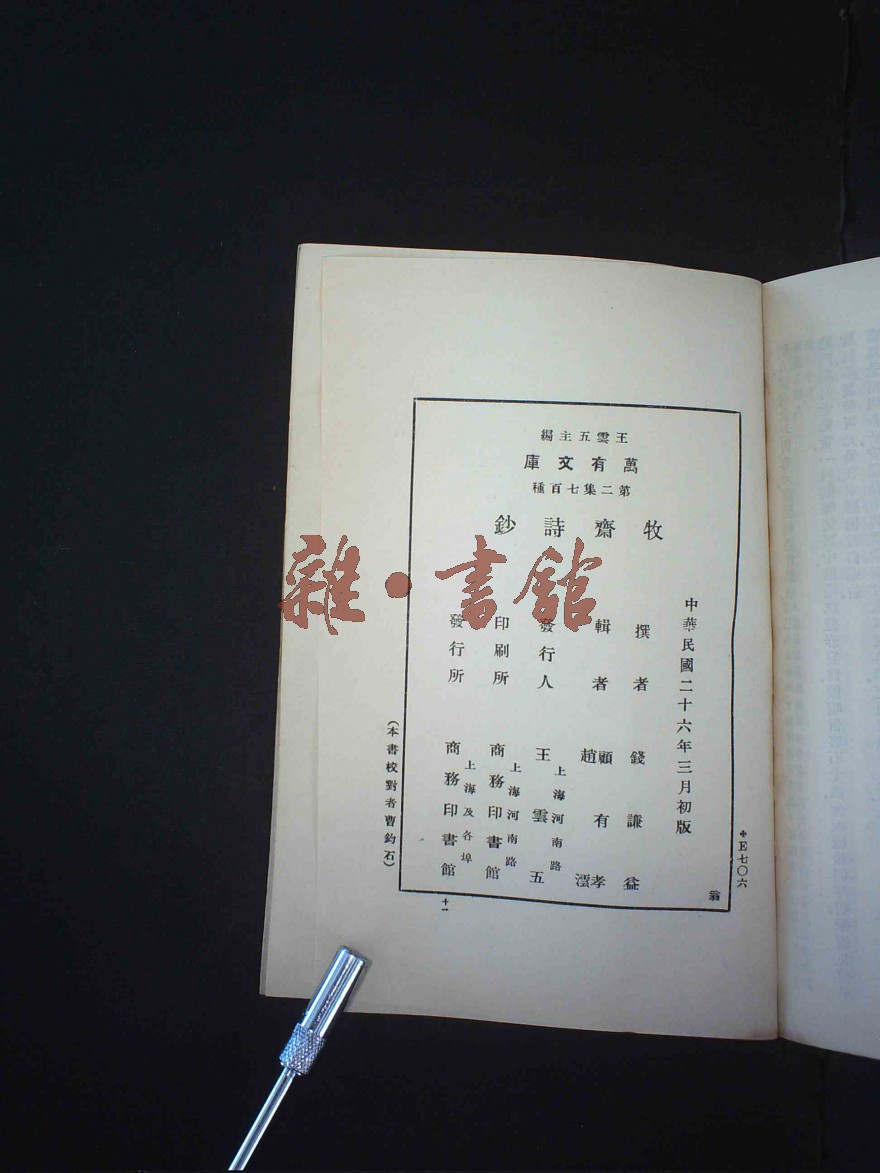 王雲五主編
萬有文庫
第二集七百種
牧齋詩鈔
中華民國二十六年三月初版
撰者 錢謙益
輯者 顧有孝 趙澐
發行人 上海河南路 王雲五
印刷所 上海河南路 商務印書館
發行所 上海及各埠 商務印書館
(本書校對者曹鈞石)
E七〇六
翁
十一
雜·書館